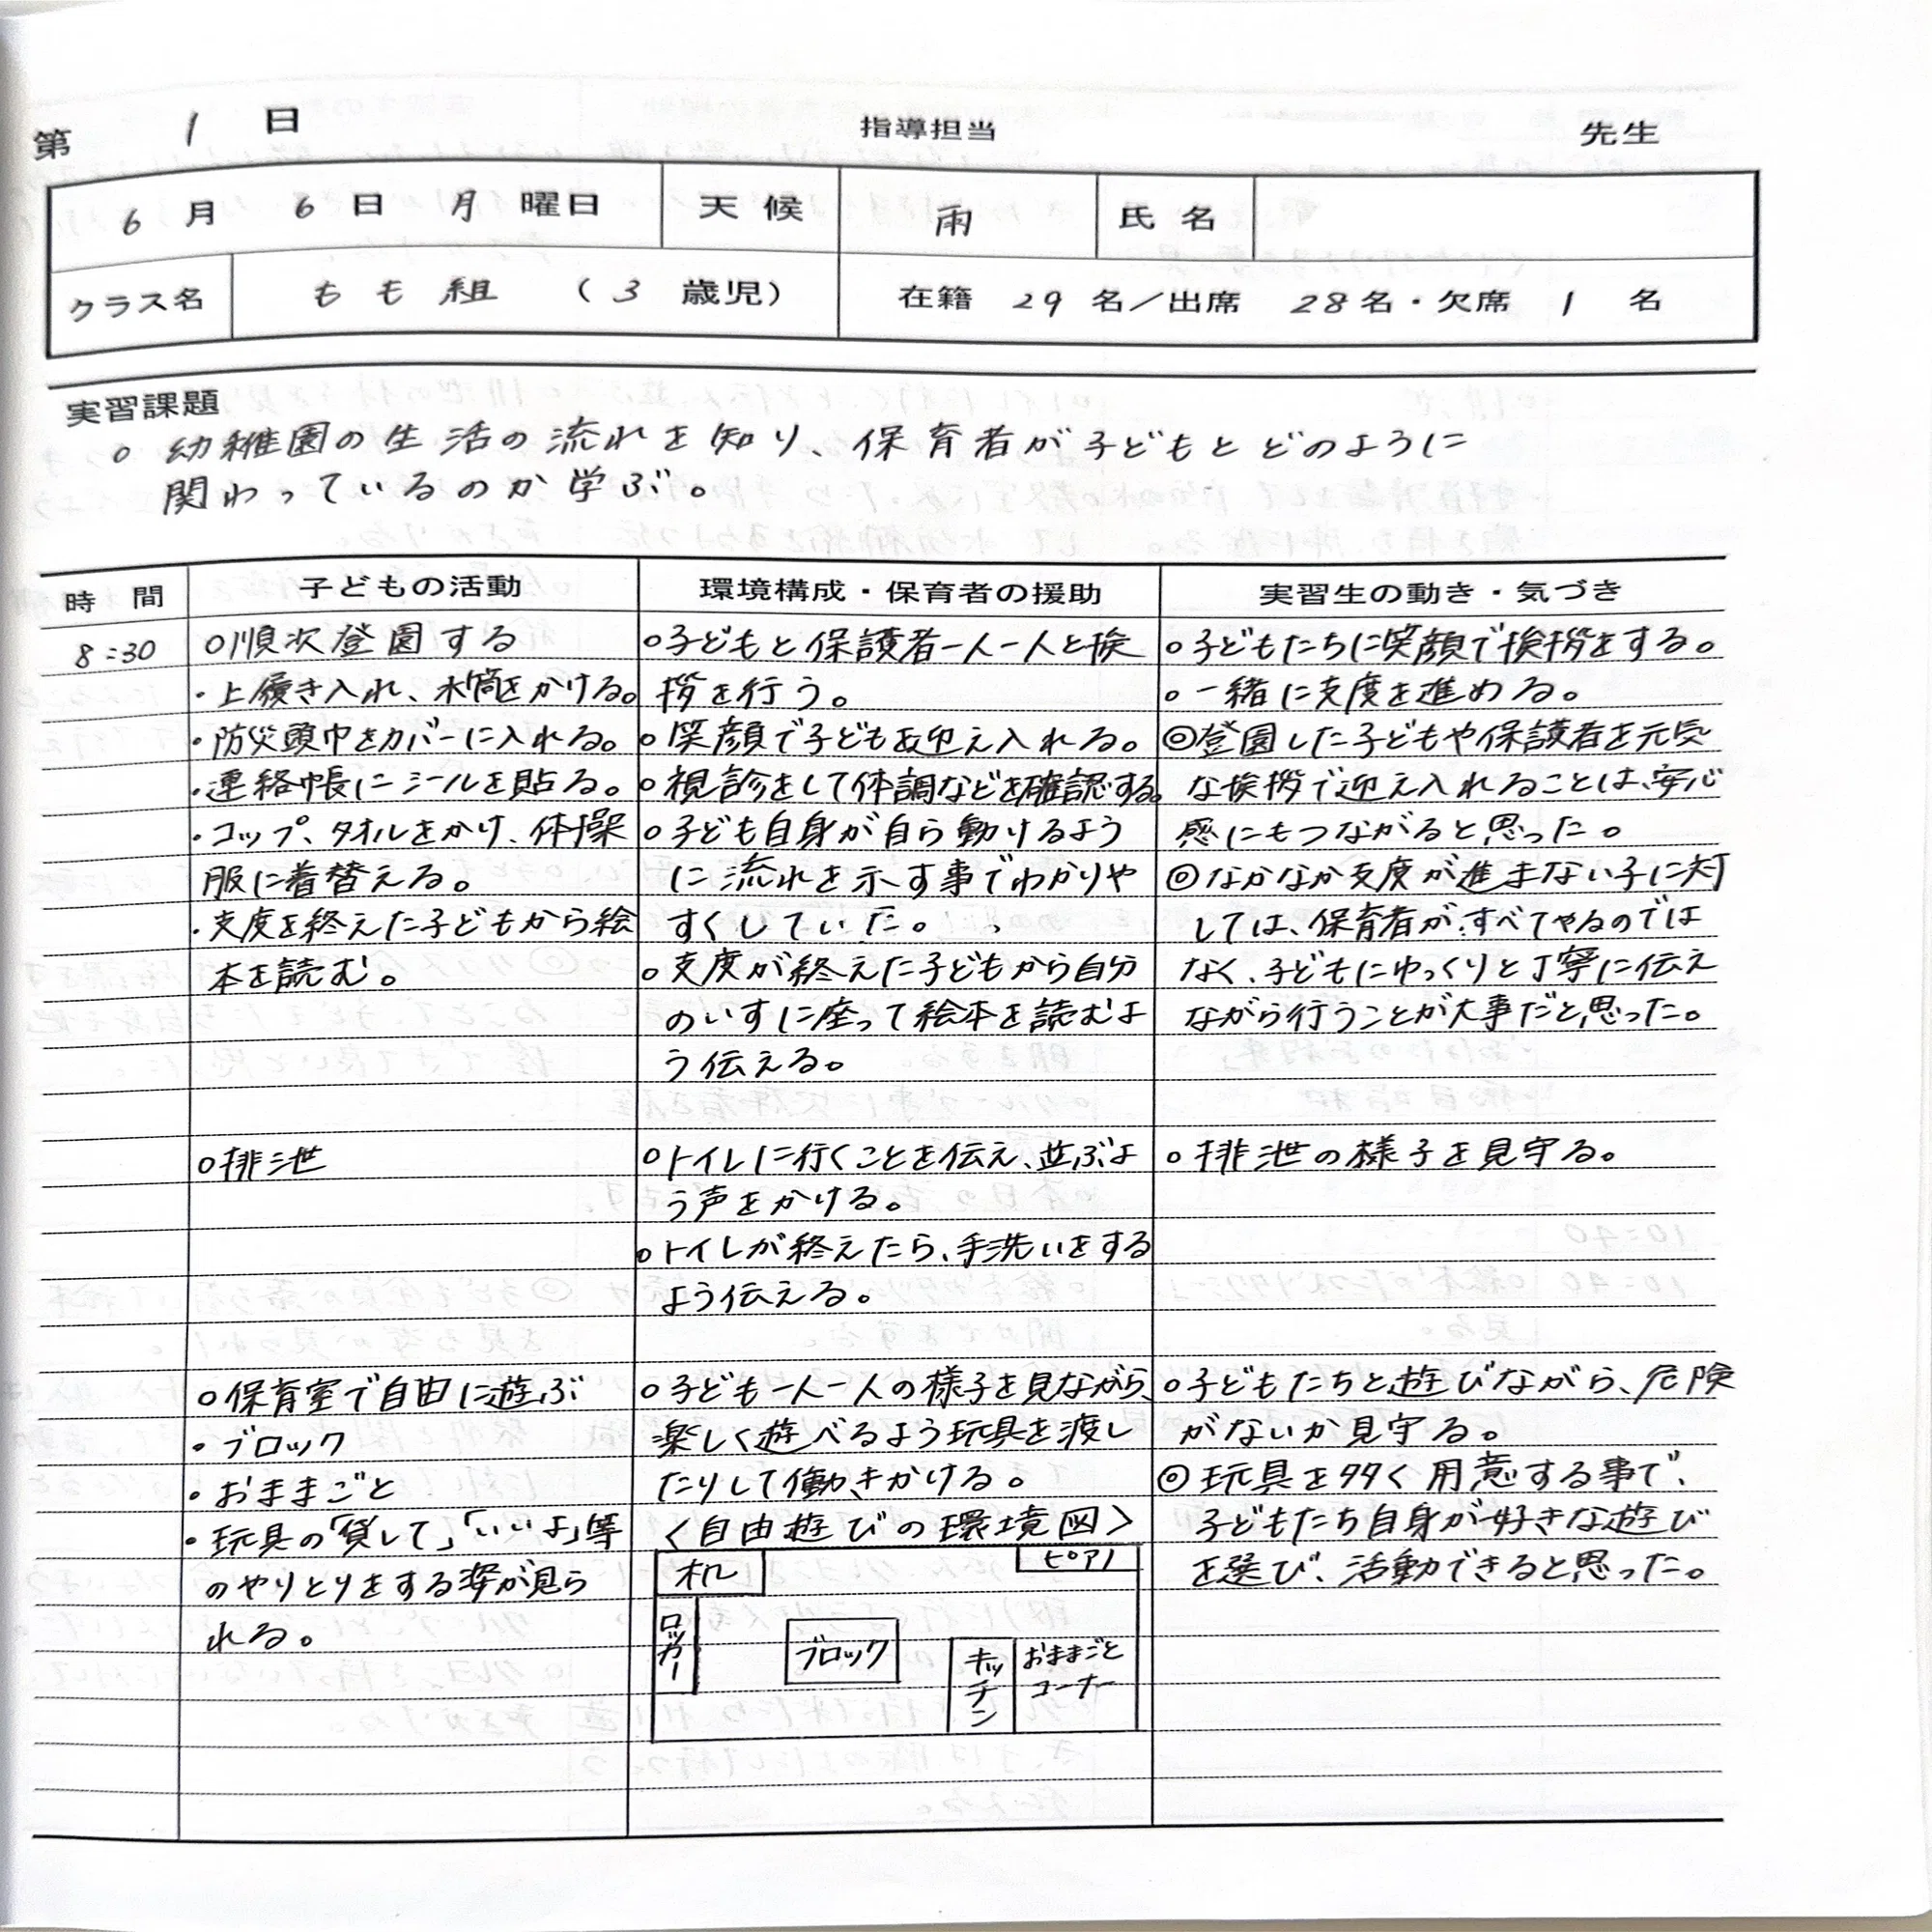 第 1 日 指導担当 先生
6 月 6 日 月 曜日 天 候 雨 氏 名
クラス名 もも組 （ 3 歳児） 在籍 29 名／出席 28 名・欠席 1 名
実習課題
○ 幼稚園の生活の流れを知り、保育者が子どもとどのように
関わっているのか学ぶ。
時 間 子どもの活動 環境構成・保育者の援助 実習生の動き・気づき
8:30
○順次登園する
・上履き入れ、水筒をかける。
・防災頭巾をカバーに入れる。
・連絡帳にシールを貼る。
・コップ、タオルをかけ、体操
服に着替える。
・支度を終えた子どもから絵
本を読む。
○子どもと保護者一人一人と挨
拶を行う。
○笑顔で子どもを迎え入れる。
○視診をして体調などを確認する。
○子ども自身が自ら動けるよう
に流れを示す事でわかりや
すくしていた。
○支度が終えた子どもから自分
のいすに座って絵本を読むよ
う伝える。
○子どもたちに笑顔で挨拶をする。
○一緒に支度を進める。
◎登園した子どもや保護者を元気
な挨拶で迎え入れることは、安心
感にもつながると思った。
◎なかなか支度が進まない子に対
しては、保育者がすべてやるのでは
なく、子どもにゆっくりと丁寧に伝え
ながら行うことが大事だと思った。
○排泄
○トイレに行くことを伝え、並ぶよ
う声をかける。
○トイレが終えたら、手洗いをする
よう伝える。
○排泄の様子を見守る。
○保育室で自由に遊ぶ
・ブロック
・おままごと
・玩具の「貸して」「いいよ」等
のやりとりをする姿が見ら
れる。
○子ども一人一人の様子を見ながら、
楽しく遊べるよう玩具を渡し
たりして働きかける。
＜自由遊びの環境図＞
机
ピアノ
ロッカー
ブロック
キッチン
おままごと
コーナー
○子どもたちと遊びながら、危険
がないか見守る。
◎玩具を多く用意する事で、
子どもたち自身が好きな遊び
を選び、活動できると思った。